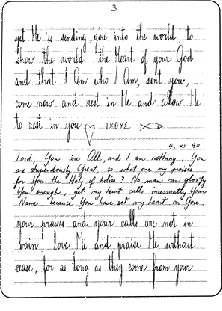 3
yet He is sending you into the world to
show the world the Heart of your God
and that I Am who I Am, sent you,
come now and rest in Me and allow Me
to rest in you
Lord, You are All, and I am nothing. You
are Great, so what are my praises
for You the Holy of holies? No man can glorify
You enough, yet my heart calls incessantly Your
Name because You have set my heart on You.
your praises and your calls are not in
vain, love Me and praise Me without
cease, for as long as they come from your